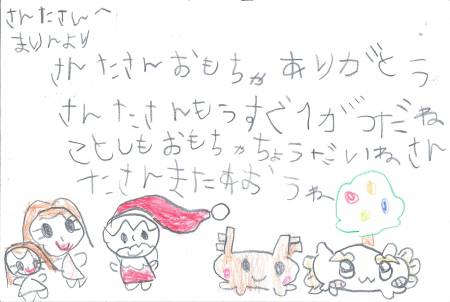 さんたさんへ
まりんより
さんたさんおもちゃありがとう
さんたさんもうすぐ1がつだね
ことしもおもちゃちょうだいねさん
たさんきた